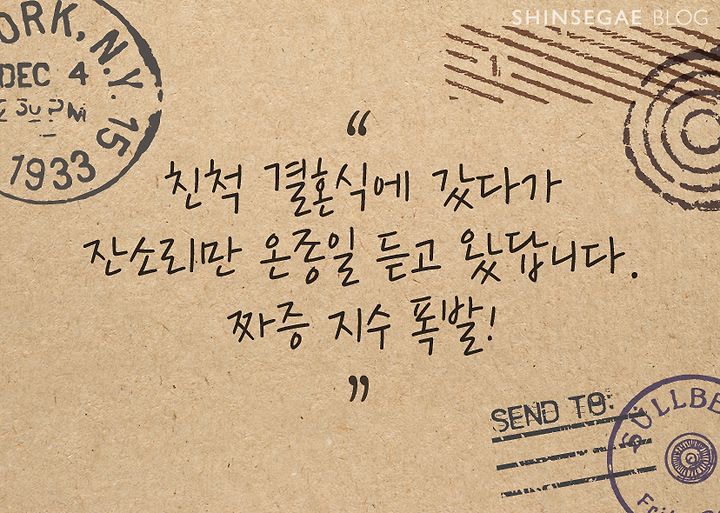 SHINSEGAE BLOG
ORK, N.Y. 15
DEC 4
30 PM
1933
1
“
친척 결혼식에 갔다가
잔소리만 온종일 듣고 왔답니다.
짜증 지수 폭발!
”
SEND TO:
SÜLLBE